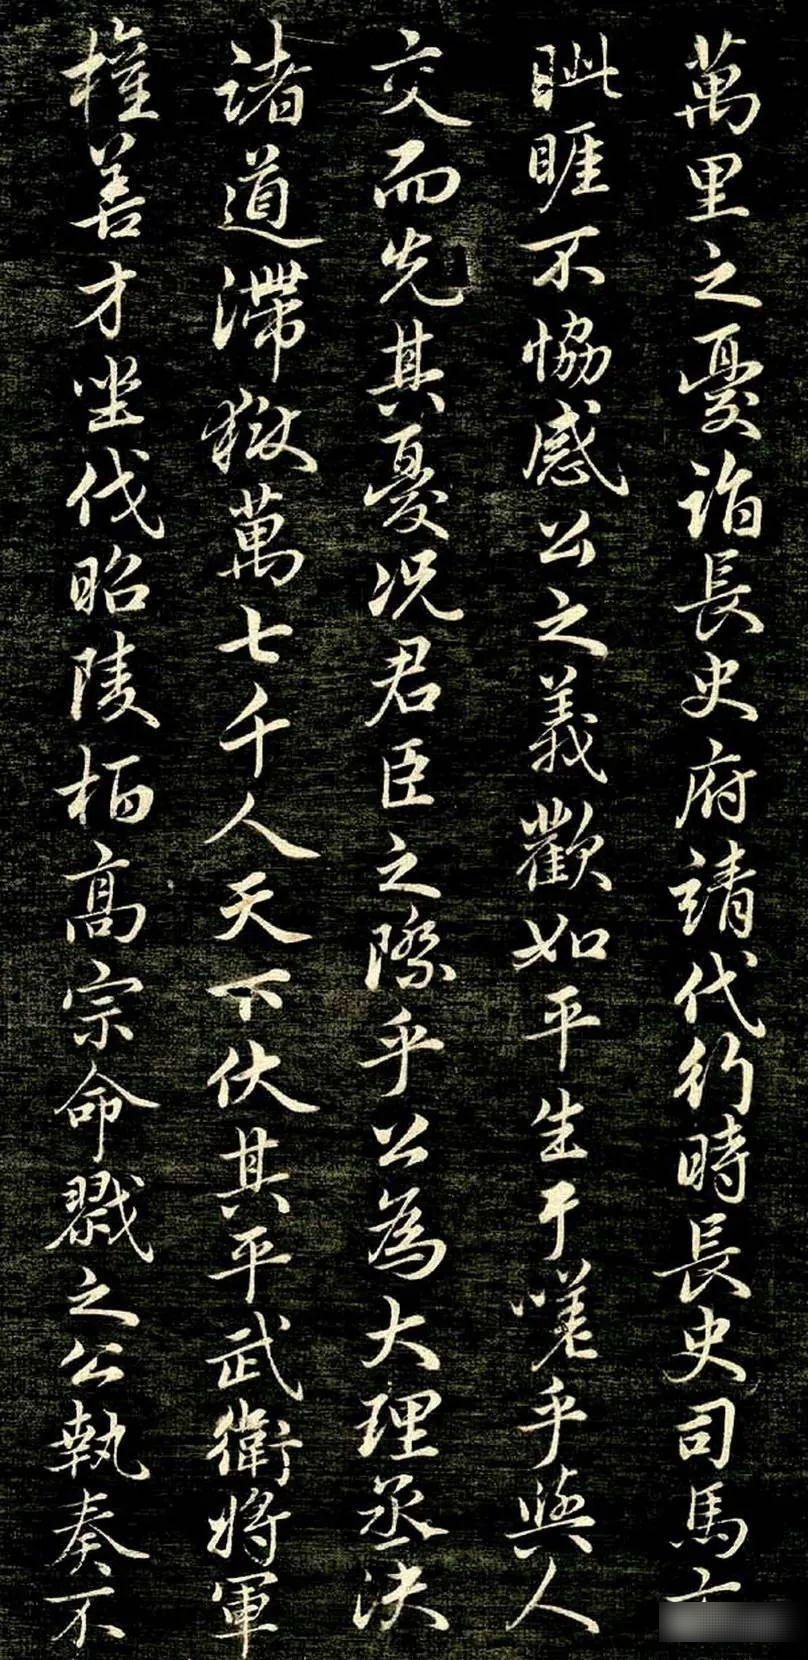 萬里之憂詣長史府請代行時長史司馬
眦睚不恊感公之義歡如平生于嗟乎與人
交而先其憂况君臣之際乎公為大理丞決
諸道滯獄萬七千人天下伏其平武衛將軍
權善才坐伐昭陵栢高宗命戮之公執奏不